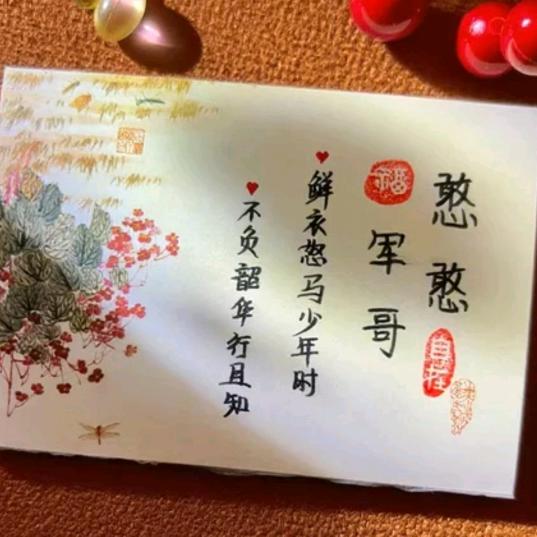 憨憨
自在
福
军哥
鲜衣怒马少年时
不负韶华行且知